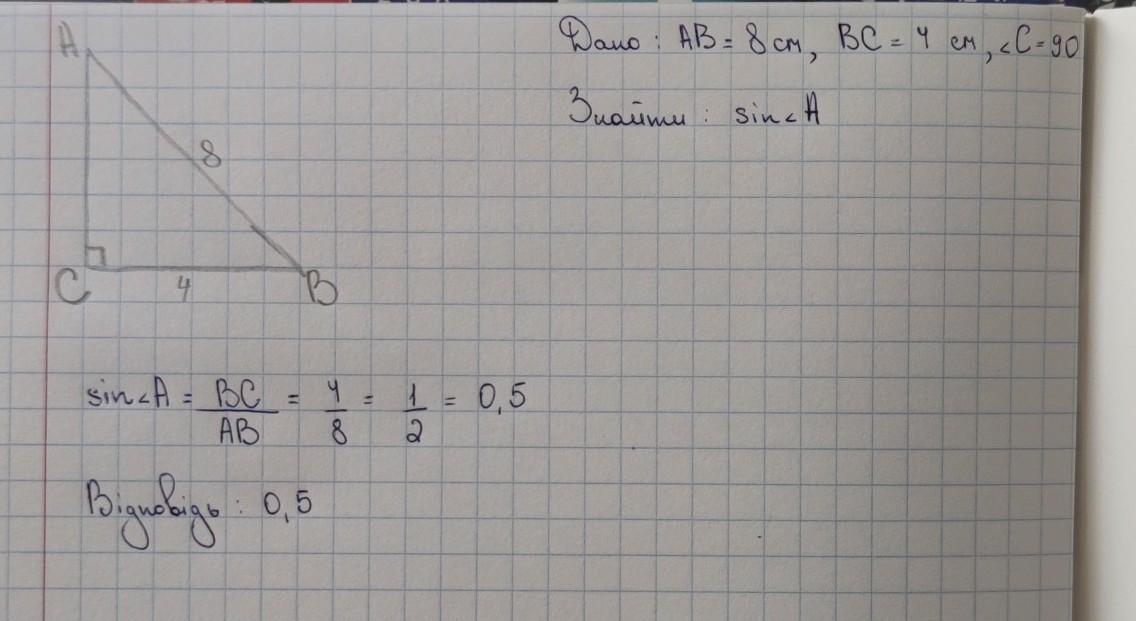 Дано : AB = 8 см, BC = 4 см, ∠C = 90
Знайти : sin∠A
A
8
C
4
B
sin∠A = BC/AB = 4/8 = 1/2 = 0,5
Відповідь : 0,5